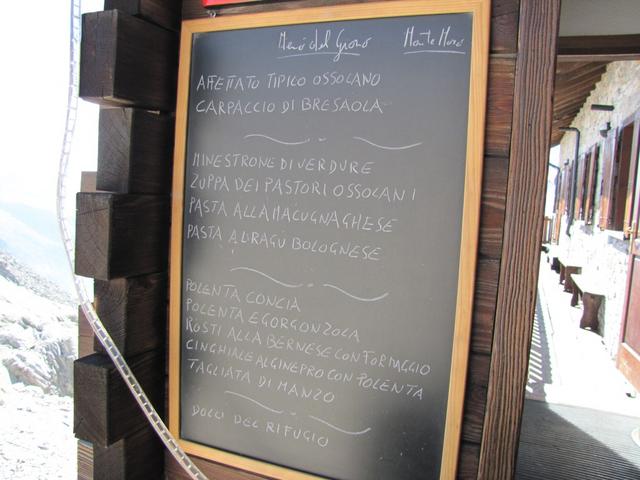 Menù del Giorno Monte Moro
AFFETTATO TIPICO OSSOLANO
CARPACCIO DI BRESAOLA
MINESTRONE DI VERDURE
ZUPPA DEI PASTORI OSSOLANI
PASTA ALLA MACUGNAGHESE
PASTA AL RAGU BOLOGNESE
POLENTA CONCIA
POLENTA E GORGONZOLA
ROSTI ALLA BERNESE CON FORMAGGIO
CINGHIALE AL GINEPRO CON POLENTA
TAGLIATA DI MANZO
DOLCI DEL RIFUGIO